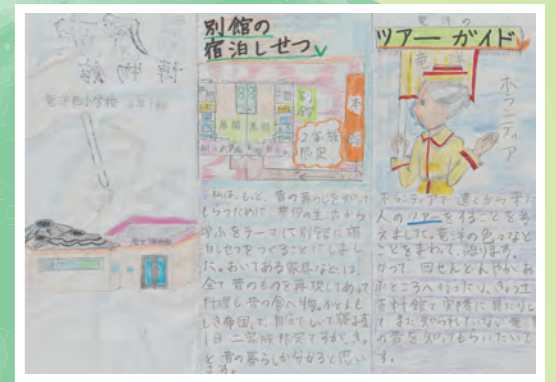 博物館
竜洋西小学校
別館の
宿泊しせつ
本館
別館
2家族
限定
私は、もっと、昔の暮らしを知って
もらうために、昔の生活から
学ぶをテーマにて別館に宿
泊しせつをつくることにしまし
た。おいてある家具などは、
全て昔のものを再現してあって
料理も昔の食べ物。ふとんも
しき布団で、自分でしいて寝ます
1日二家族限定ですが、きっ
と昔の暮らしが分かると思い
ます。
竜洋の
ツアーガイド
竜洋
ボランティア
ボランティアで遠くから来た
人のツアーをすることを考
えました。竜洋の色々なと
ことをまわって、語ります。
かつて、回せんとんやがあ
たところへ行ったり、きょう土
資料館で実際に見たりし
て、まだ知られていない竜洋
の昔を知ってもらいたいで
す。